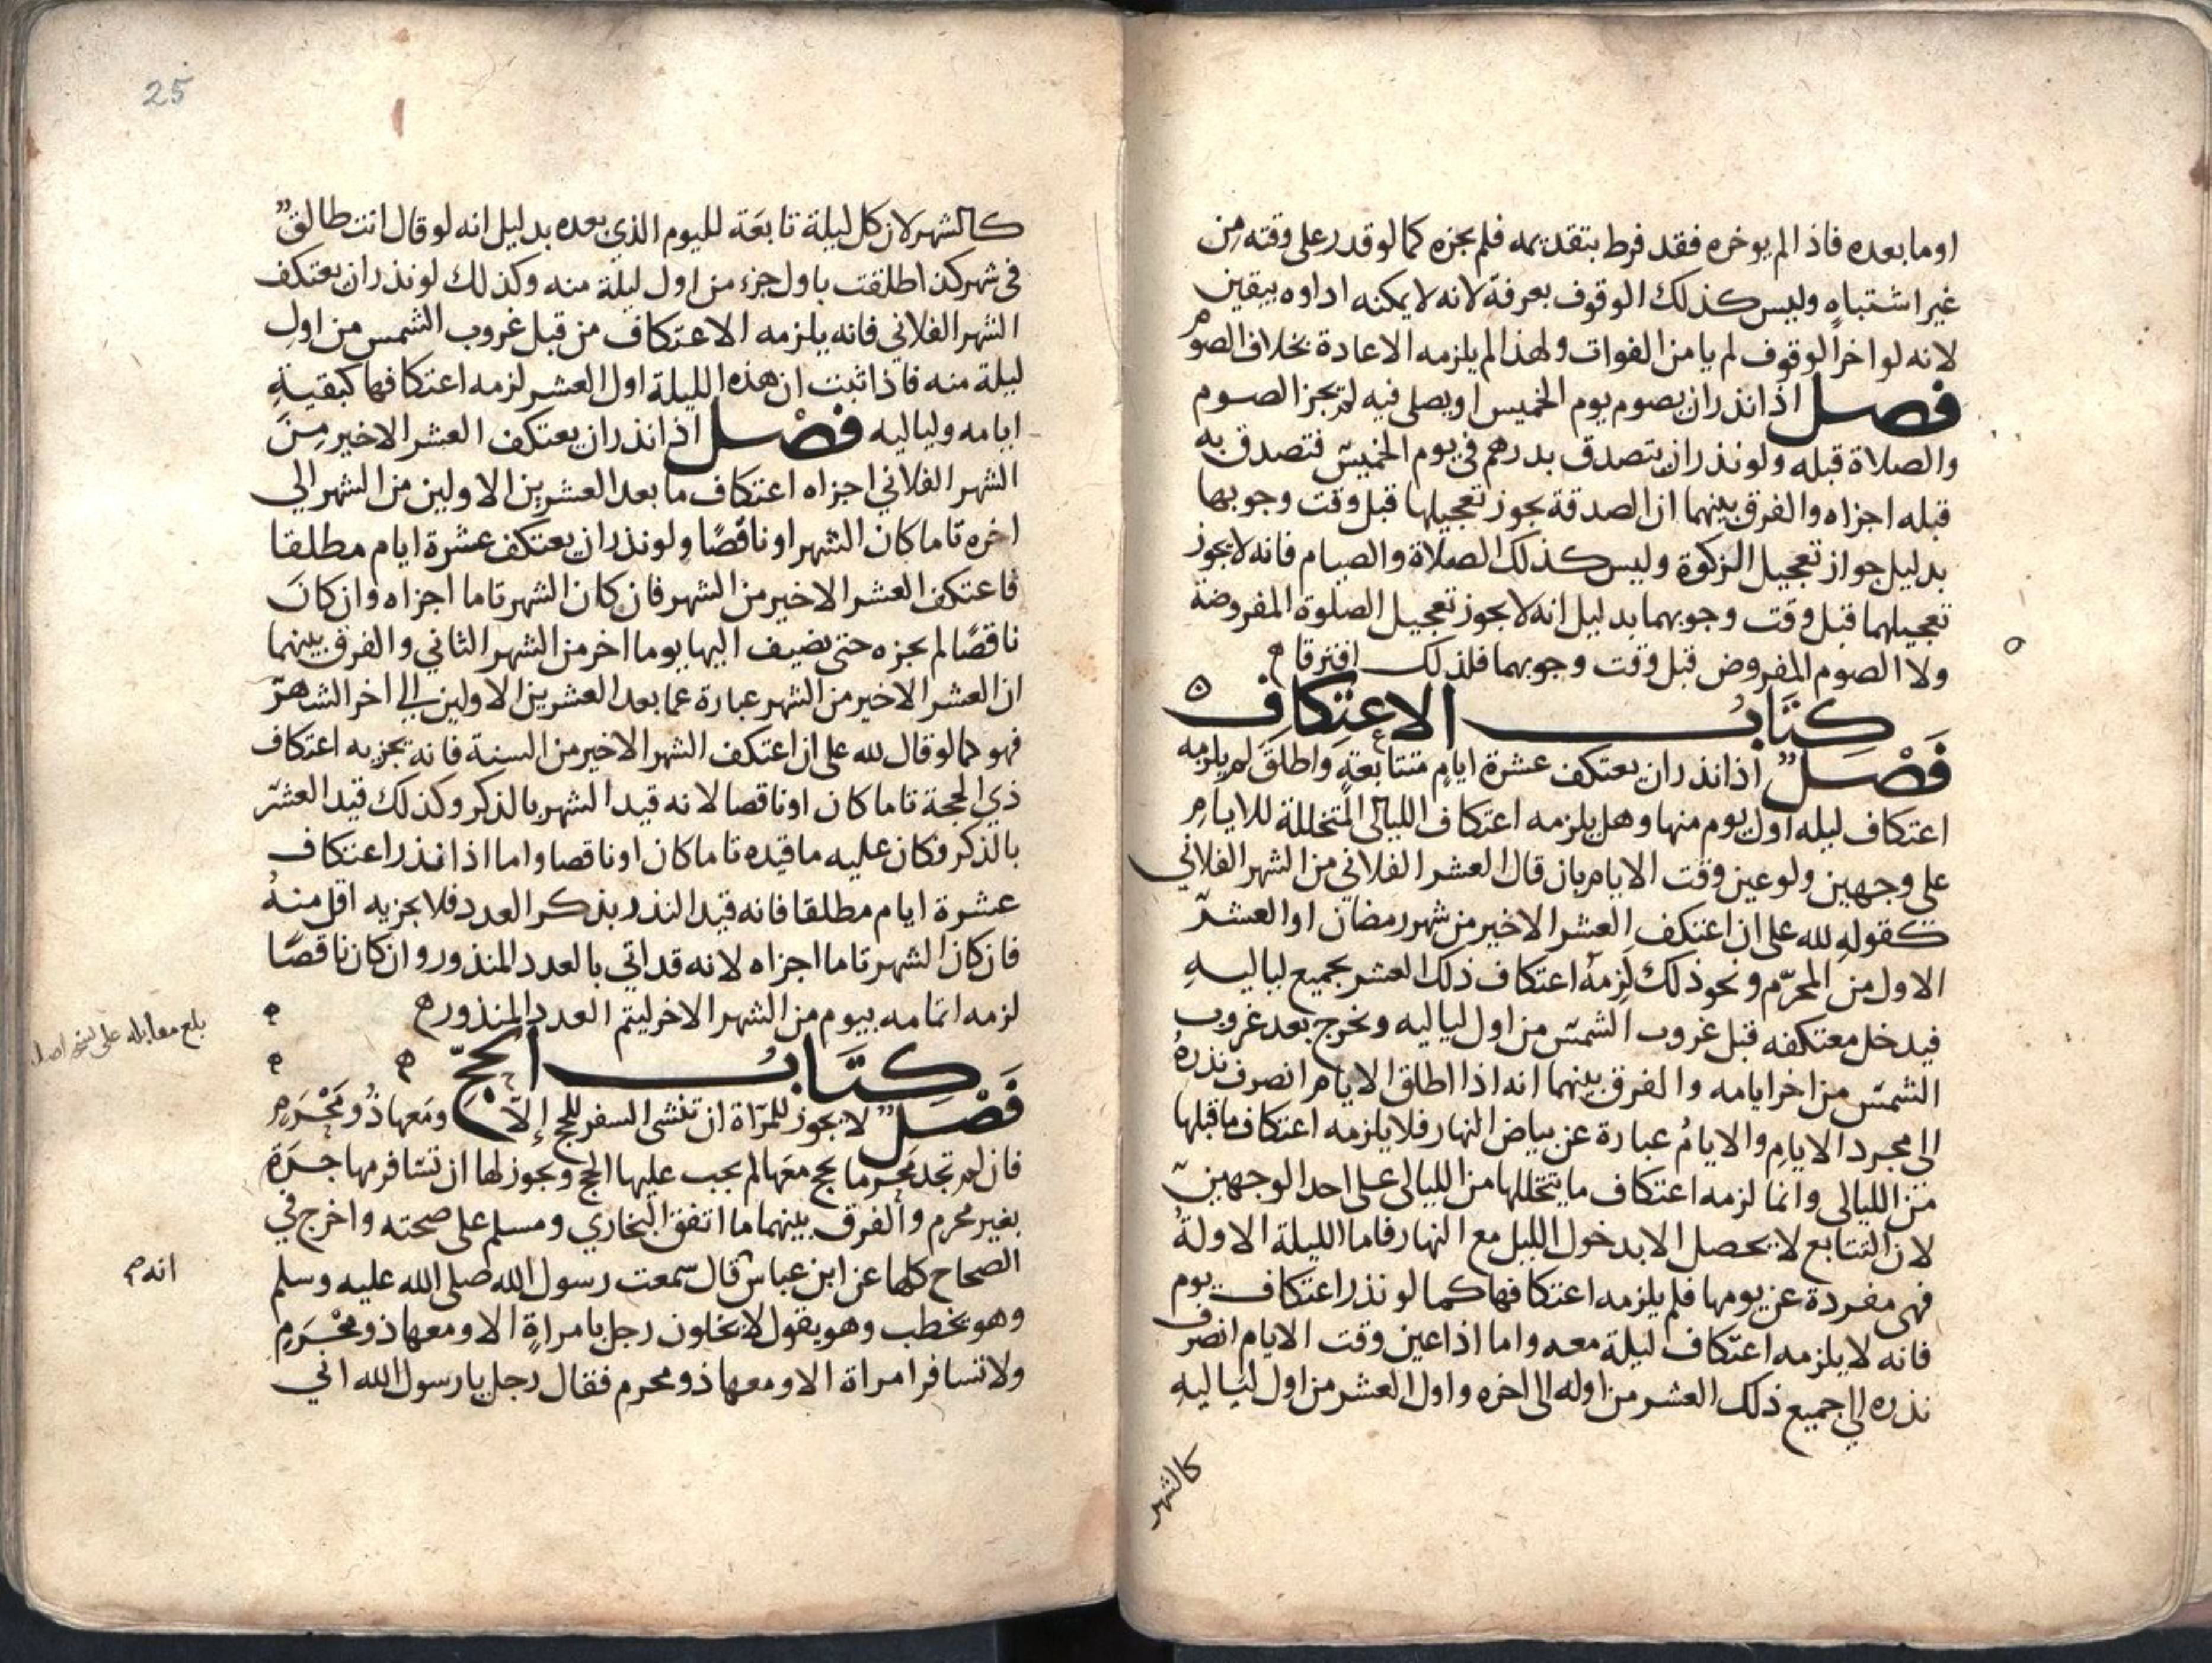 او ما بعده فاذا لم يوخره فقد فرط بتقديمه فلم يجزه كما لو قدر على وقته من
غير اشتباه وليس كذلك الوقوف بعرفة لانه لا يمكنه اداوه بيقين
لانه لو اخر الوقوف لم يامن الفوات ولهذا لم يلزمه الاعادة بخلاف الصوم
فصل اذا نذر ان يصوم يوم الخميس او يصلي فيه لم يجز الصوم
والصلاة قبله ولو نذر ان يتصدق بدرهم في يوم الخميس فتصدق به
قبله اجزاه والفرق بينهما ان الصدقة يجوز تعجيلها قبل وقت وجوبها
بدليل جواز تعجيل الزكوة وليس كذلك الصلاة والصيام فانه لا يجوز
تعجيلهما قبل وقت وجوبهما بدليل انه لا يجوز تعجيل الصلوة المفروضة
ولا الصوم المفروض قبل وقت وجوبهما فلذلك افترقا
كِتَابُ الاعتِكافِ
فَصْلٌ اذا نذر ان يعتكف عشرة ايامٍ متتابعةٍ واطلقَ لم يلزمه
اعتكاف ليله اول يوم منها وهل يلزمه اعتكاف الليالي المتخللة للايامِ
على وجهين ولو عين وقت الايام بان قال العشر الفلاني من الشهر الفلاني
كقولهِ لله على ان اعتكف العشر الاخير من شهر رمضان او العشر
الاول من المحرّم ونحو ذلك لزمهُ اعتكاف ذلك العشر بجميع لياليهِ
فيدخل معتكفه قبل غروب الشمس من اول لياليه ويخرج بعد غروب
الشمس من اخر ايامه والفرق بينهما انه اذا اطلق الايام انصرف نذرهُ
الى مجرد الايامِ والايامُ عبارة عن بياض النهار فلا يلزمه اعتكاف ما قبلها
من الليالي وانما لزمه اعتكاف ما يتخللها من الليالي على احد الوجهين
لان التتابع لا يحصل الا بدخول الليل مع النهار فاما الليلة الاولةُ
فهى مفردة عن يومها فلم يلزمه اعتكافها كما لو نذر اعتكاف يوم
فانه لا يلزمه اعتكاف ليلة معه واما اذا عين وقت الايام انصرف
نذره الي جميع ذلك العشر من اوله الى اخره واول العشر من اول لياليهِ
كالشهر
25
كالشهر لان كل ليلة تابعَة لليوم الذي بعده بدليل انه لو قال انت طالقٌ
في شهر كذا طلقت باول جزء من اول ليلة منه وكذلك لو نذر ان يعتكف
الشهر الفلاني فانه يلزمه الاعتكاف من قبل غروب الشمس من اولِ
ليلة منه فاذا ثبت ان هذه الليلة اول العشر لزمه اعتكافها كبقيةِ
ايامه ولياليه فَصْل اذا نذر ان يعتكف العشر الاخير مِنَ
الشهر الفلاني اجزاه اعتكاف ما بعد العشرين الاولين من الشهر الي
اخره تاما كان الشهر او ناقصًا ولو نذر ان يعتكف عشرة ايام مطلقا
فاعتكف العشر الاخير من الشهر فان كان الشهر تاما اجزاه وان كانَ
ناقصًا لم يجزه حتى يضيف اليها يوما اخر من الشهر الثاني والفرق بينهما
ان العشر الاخير من الشهر عبارة عما بعد العشرين الاولين الي اخر الشهر
فهو كما لو قال لله على ان اعتكف الشهر الاخير من السنة فانه يجزيه اعتكاف
ذي الحجة تاما كان او ناقصا لانه قيد الشهر بالذكر وكذلك قيد العشر
بالذكر فكان عليه ما قيده تاما كان او ناقصا واما اذا نذر اعتكاف
عشرة ايام مطلقا فانه قيد النذر بذكر العدد فلا يجزيه اقل منهُ
فان كان الشهر تاما اجزاه لانه قد اتي بالعدد المنذور وان كان ناقصًا
لزمه اتمامه بيوم من الشهر الاخر ليتم العدد المنذور ه
بلغ مقابله على نسخة اصله
كِتَابُ الحَجِّ
فَصْلٌ لا يجوز للمرّاة ان تنشى السفر للحج إلاّ ومَعها ذُو مَحْرَمٍ
فان لم تجد مَحرما يحج معَها لم يجب عليها الحج ويجوز لها ان تسَافر مهاجرَة
بغير محرم والفرق بينهما ما اتفق البخاري ومسلم على صحته واخرج في
الصحاح كلها عن ابن عباس قال سمعت رسول الله صلى الله عليه وسلم
انه
وهو يخطب وهو يقول لا يخلون رجل بامراةٍ الا ومعها ذو مَحْرَمٍ
ولا تسافر امراة الا ومعها ذو محرم فقال رجل يا رسول الله اني